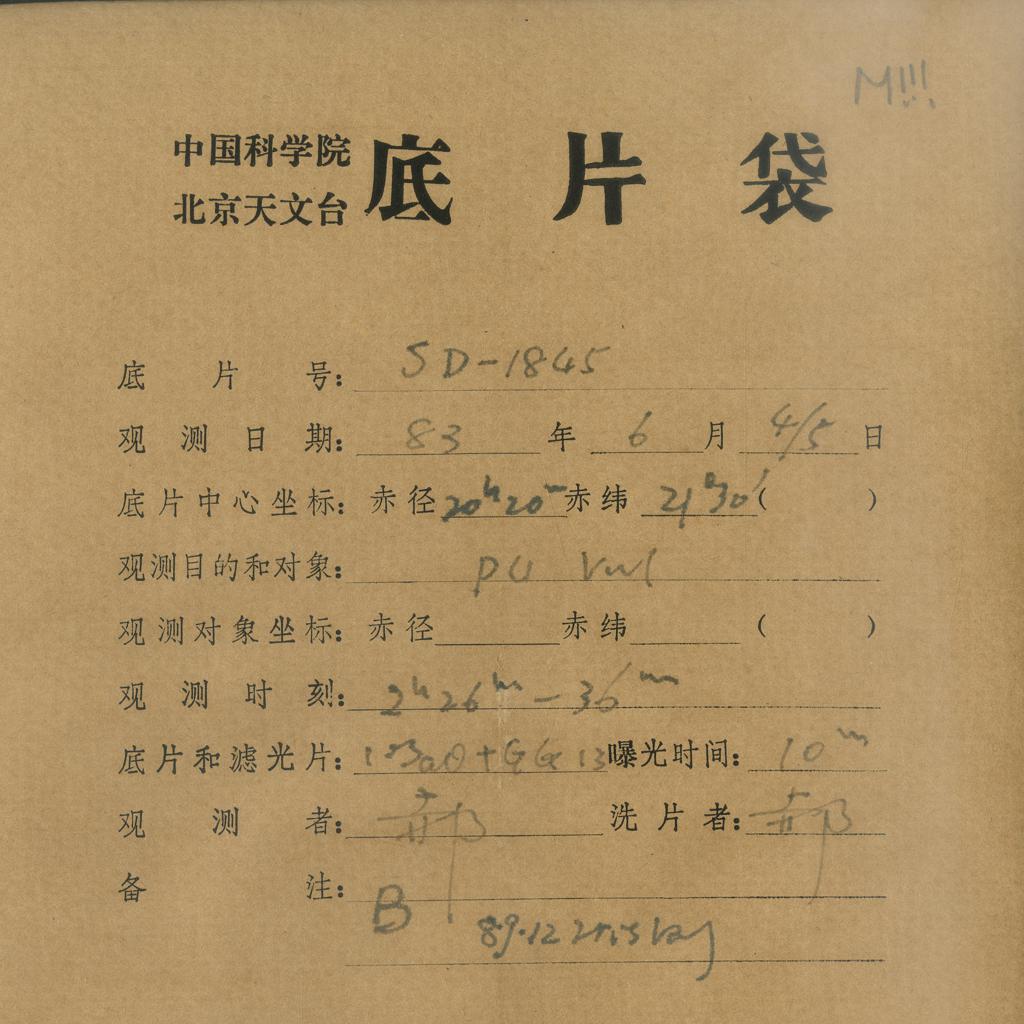 M!!!
中国科学院
北京天文台
底片袋
底片号: SD-1845
观测日期: 83年6月4/5日
底片中心坐标: 赤径20h20m赤纬21°30′( )
观测目的和对象: PU Vul
观测对象坐标: 赤径 赤纬 ( )
观测时刻: 2h26m-36m
底片和滤光片: 103aO+GG13曝光时间: 10m
观测者: 郝 洗片者: 郝
备注: B
89.12